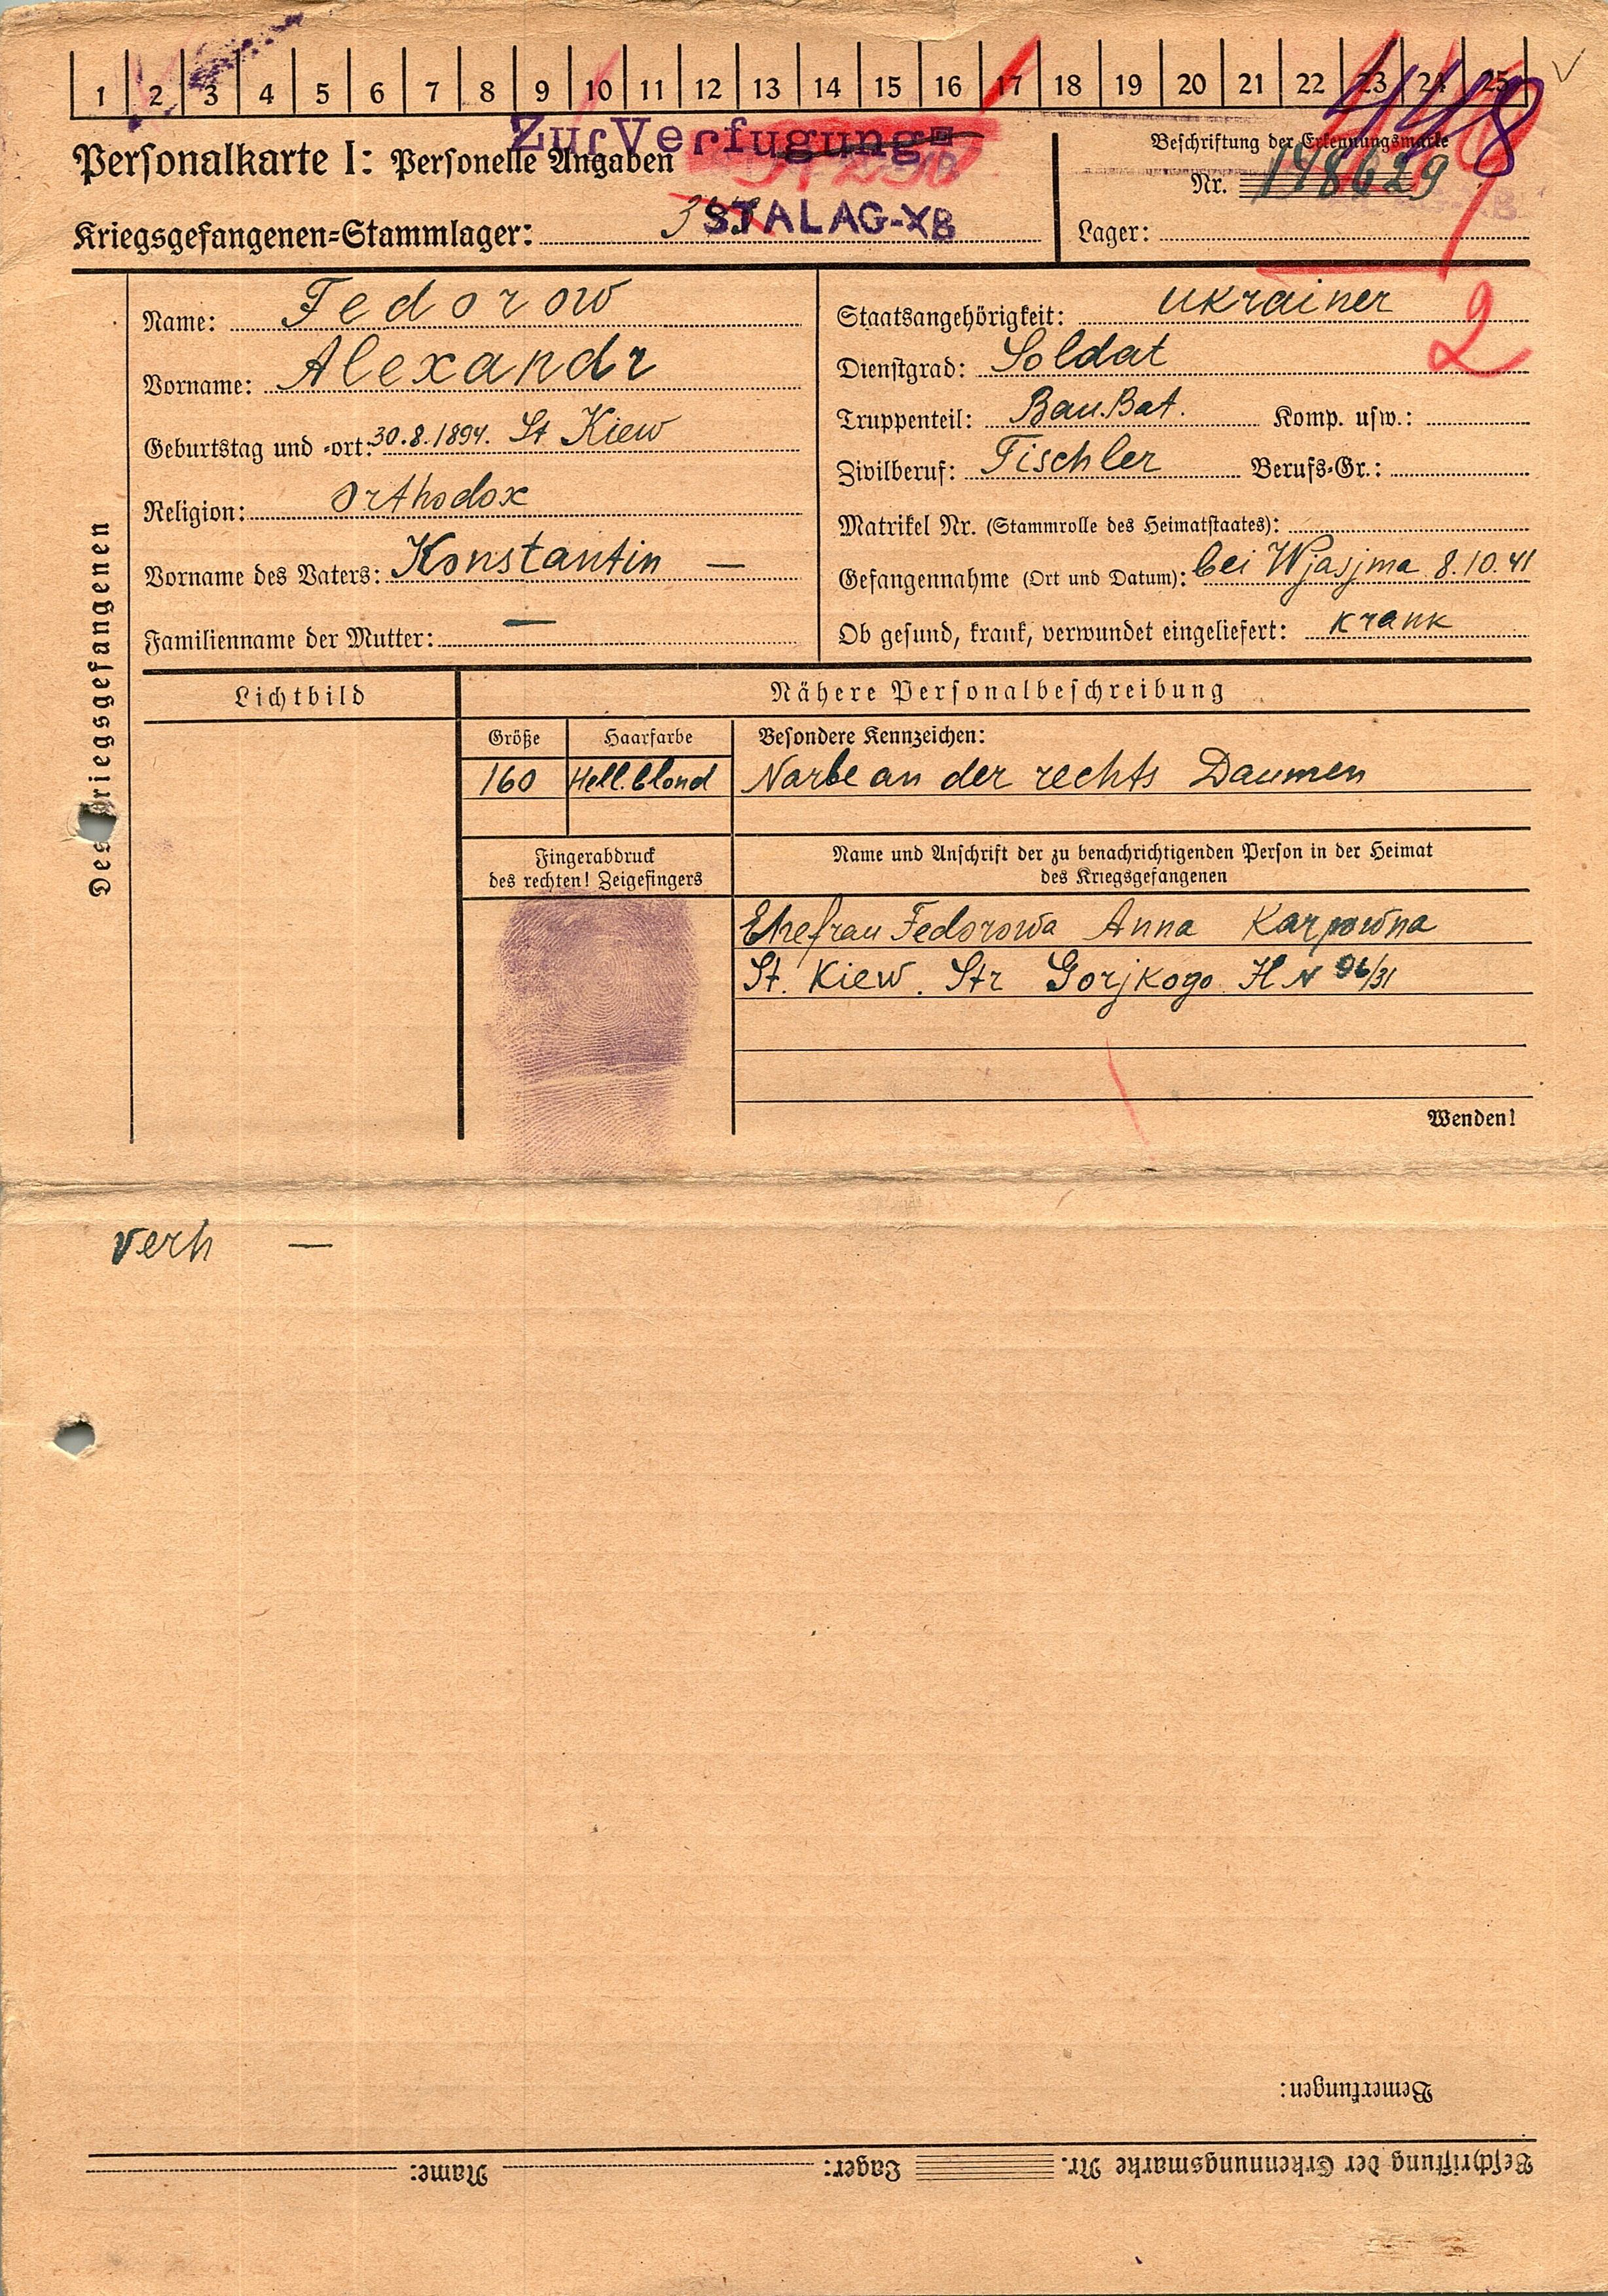 1 2 3 4 5 6 7 8 9 10 11 12 13 14 15 16 17 18 19 20 21 22 23 24 25
448
Zur Verfugung
Personalkarte I: Personelle Angaben
Beschriftung der Erkennungsmarke
Nr. 148629
Kriegsgefangenen-Stammlager: STALAG-XB
Lager:
2
Des Kriegsgefangenen
Name: Fedorow
Vorname: Alexandr
Geburtstag und -ort: 30.8.1894. St Kiew
Religion: orthodox
Vorname des Vaters: Konstantin —
Familienname der Mutter: —
Staatsangehörigkeit: ukrainer
Dienstgrad: Soldat
Truppenteil: Bau.Bat. Komp. usw.:
Zivilberuf: Tischler Berufs-Gr.:
Matrikel Nr. (Stammrolle des Heimatstaates):
Gefangennahme (Ort und Datum): bei Wjasjma 8.10.41
Ob gesund, krank, verwundet eingeliefert: krank
Lichtbild
Nähere Personalbeschreibung
Größe Haarfarbe Besondere Kennzeichen:
160 Hell.blond Narbe an der rechts Daumen
Fingerabdruck
des rechten! Zeigefingers
Name und Anschrift der zu benachrichtigenden Person in der Heimat
des Kriegsgefangenen
Ehefrau Fedorowa Anna Karpowna
St. Kiew. Str Gorjkogo H N 96/31
Wenden!
verh —
Bemerkungen:
Beschriftung der Erkennungsmarke Nr. Lager: Name: